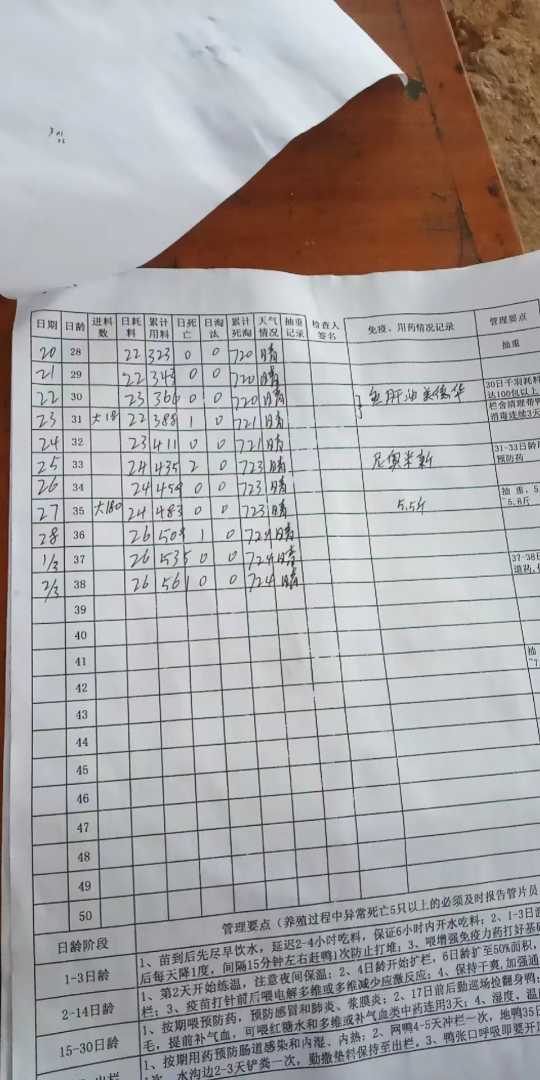 日期 日龄 进料数 日耗料 累计用料 日死亡 日淘汰 累计死淘 天气情况 抽重记录 检查人签名 免疫、用药情况记录 管理要点
抽重
20 28 22 323 0 0 720 晴
21 29 22 343 0 0 720 晴
22 30 23 366 0 0 720 晴 鱼肝油 30日千羽耗料
达100包以上
23 31 22 388 1 0 721 晴 栏舍清理带鸭
消毒连续3天
24 32 23 411 0 0 721 晴
25 33 24 435 2 0 723 晴 31-33日龄
预防药
26 34 24 459 0 0 723 晴
27 35 大180 24 483 0 0 723 晴 5.5斤 抽重,5
~5.8斤
28 36 26 509 1 0 724 晴
1/3 37 26 535 0 0 724 晴 37-38日
道药,
2/3 38 26 561 0 0 724 晴
39
40
41 抽
42
43
44
45
46
47
48
49
50
日龄阶段 管理要点(养殖过程中异常死亡5只以上的必须及时报告管片员
1-3日龄 1、苗到后先尽早饮水,延迟2-4小时吃料,保证6小时内开水吃料;2、1-3日
后每天降1度,间隔15分钟左右赶鸭1次防止打堆;3、喂增强免疫力药打好基础
2-14日龄 1、第2天开始炼温,注意夜间保温;2、4日龄开始扩栏,6日龄扩至50%面积,
栏;3、疫苗打针前后喂电解多维或多维减少应激反应;4、保持干爽,加强通
15-30日龄 1、按期喂预防药,预防感冒和肺炎、浆膜炎;2、17日前后勤巡场捡翻身鸭;
毛,提前补气血,可喂红糖水和多维或补气血类中药连用3天;4、湿度、温
1、按期用药预防肠道感染和内湿、内热;2、网鸭4-5天冲栏一次,地鸭35日
水沟边2-3天铲粪一次,勤撒垫料保持至出栏。3、鸭张口呼吸即要开